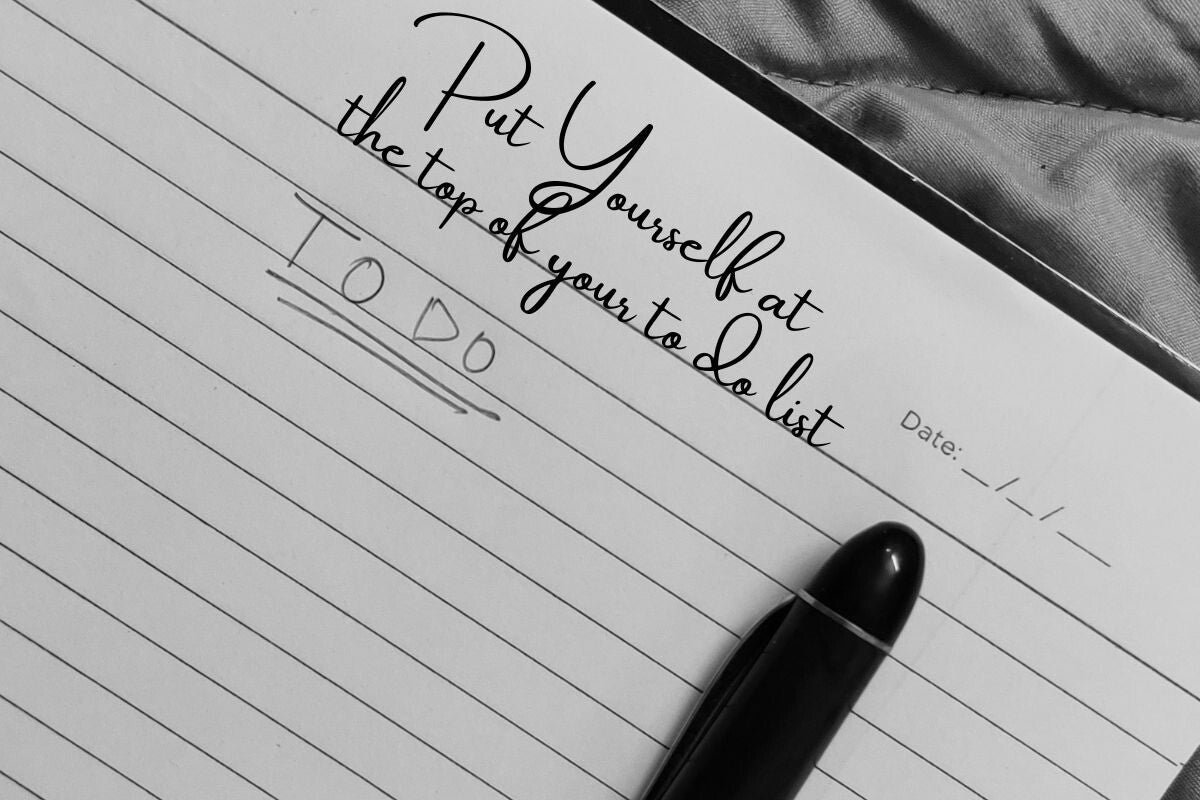 Put Yourself at
the top of your to do list
TO DO
Date: __/__/__